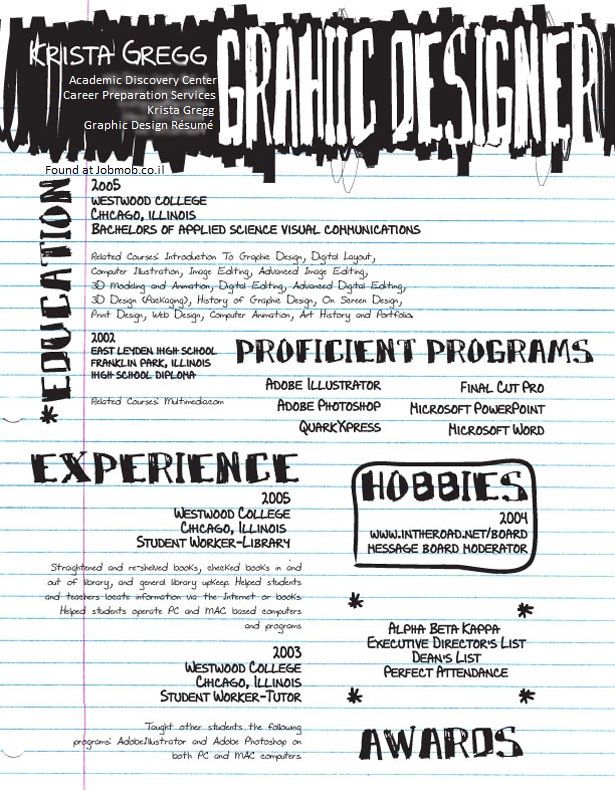 Krista Gregg
GRAHIIC DESIGNER
Academic Discovery Center
Career Preparation Services
Krista Gregg
Graphic Design Résumé
Found at Jobmob.co.il
*EDUCATION
2005
WESTWOOD COLLEGE
CHICAGO, ILLINOIS
BACHELORS OF APPLIED SCIENCE VISUAL COMMUNICATIONS
Related Courses: Introduction To Graphic Design, Digital Layout,
Computer Illustration, Image Editing, Advanced Image Editing,
3D Modeling and Animation, Digital Editing, Advanced Digital Editing,
3D Design (Packaging), History of Graphic Design, On Screen Design,
Print Design, Web Design, Computer Animation, Art History and Portfolio.
2002
EAST LEYDEN HIGH SCHOOL
FRANKLIN PARK, ILLINOIS
HIGH SCHOOL DIPLOMA
Related Courses: Multimedia.com
PROFICIENT PROGRAMS
ADOBE ILLUSTRATOR
ADOBE PHOTOSHOP
QUARKXPRESS
FINAL CUT PRO
MICROSOFT POWERPOINT
MICROSOFT WORD
EXPERIENCE
2005
WESTWOOD COLLEGE
CHICAGO, ILLINOIS
STUDENT WORKER-LIBRARY
Straightened and re-shelved books, checked books in and
out of library, and general library upkeep. Helped students
and teachers locate information via the Internet or books.
Helped students operate PC and MAC based computers
and programs
2003
WESTWOOD COLLEGE
CHICAGO, ILLINOIS
STUDENT WORKER-TUTOR
Taught other students the following
programs: AdobeIllustrator and Adobe Photoshop on
both PC and MAC computers.
HOBBIES
2004
WWW.INTHEROAD.NET/BOARD
MESSAGE BOARD MODERATOR
* *
ALPHA BETA KAPPA
EXECUTIVE DIRECTOR'S LIST
DEAN'S LIST
PERFECT ATTENDANCE
* *
AWARDS